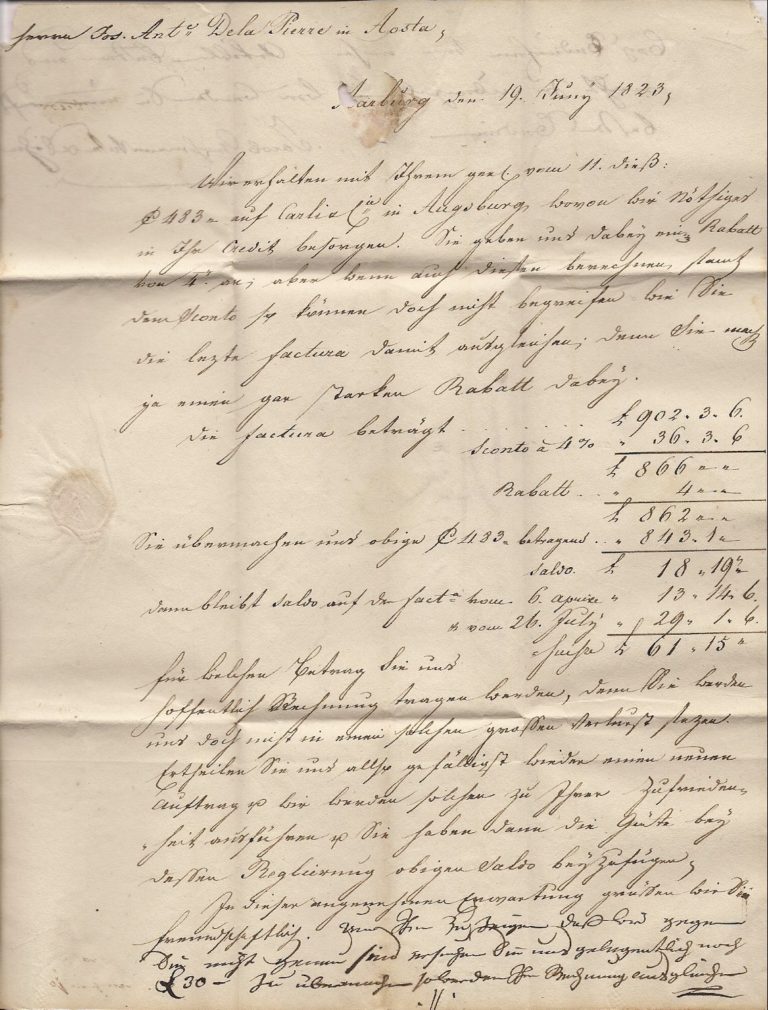 Herrn Jos. Ant.º Dela Pierre in Aosta,
Aarburg den 19. Juny 1823,
Wir erhalten mit Ihrem geel vom 11. dieß:
₤ 483 auf Carli & Cie in Augsburg, wovon wir Nöthiges
in Ihr Credit besorgen. Sie geben uns dabey einen Rabatt
von 4 an; aber wenn auch diesen berechnen, samt
dem Sconto so können doch nicht begreifen wie Sie
die lezte factura damit ausgleichen, denn Sie mach
ja einen gar starken Rabatt dabey.
die factura beträgt . . . . . . . £ 902. 3. 6.
Sconto à 4% " 36. 3. 6
£ 866 " "
Rabatt . . " 4 " "
£ 862 " "
Sie übermachen uns obige ₤ 483 betragend . . " 843. 1 "
Saldo. £ 18 " 19 "
dann bleibt Saldo auf der fact.a vom 6. " 13 " 14. 6.
" vom 26. July " 29 " 1. 6.
£ 61 " 15 "
für welchen Betrag Sie uns
hoffentlich Rechnung tragen werden, denn Sie werden
uns doch nicht in einen solchen grossen Verlurst sezen.
Ertheilen Sie uns also gefälligst wieder einen neuen
Auftrag u wir werden solchen zu Ihrer Zufrieden-
heit ausführen u Sie haben dann die Güte bey
dessen Reglierung obigen Saldo beyzufügen,
In dieser angenehmen Erwartung grüssen wir Sie
freundschaftlich. Um Ihn zu zeigen daß wir gegen
Sie nicht genau sind ersuchen Sie uns gelegentlich noch
£ 30 – zu übermachen so werden Ihre Rechnung ausgleichen